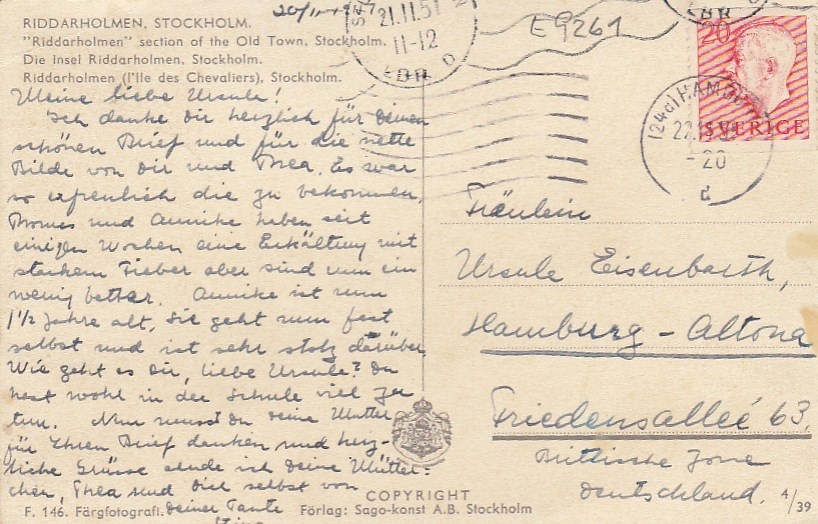 RIDDARHOLMEN, STOCKHOLM.
"Riddarholmen" section of the Old Town, Stockholm.
Die Insel Riddarholmen, Stockholm.
Riddarholmen (l'Ile des Chevaliers), Stockholm.
20/11-1951
21.11.51
11-12
LBR D
LBR
E 9261
20
SVERIGE
(24a) HAMBURG
22.11.51
-20
d
Meine liebe Ursula!
Ich danke Dir herzlich für Deinen
schönen Brief und für die nette
Bilde von Dir und Thea. Es war
so erfreulich die zu bekommen.
Thomas und Annika haben seit
einigen Wochen eine Erkältung mit
starkem Fieber aber sind nun ein
wenig better. Annika ist nun
1 1/2 Jahre alt, Sie geht nun fast
selbst und ist sehr stolz darüber.
Wie geht es Dir, liebe Ursula? Du
hast wohl in der Schule viel zu
tun. Nun musst Du Deine Mutter
für Ihren Brief danken und herz-
liche Grüsse sende ich Deine Mütter-
chen, Thea und Dich selbst von
Deiner Tante
Stina
Fräulein
Ursula Eisenbarth,
Hamburg-Altona
Friedensalleé 63,
Brittische Zone
Deutschland.
COPYRIGHT
F. 146. Färgfotografi.
Förlag: Sago-konst A.B. Stockholm
4/39